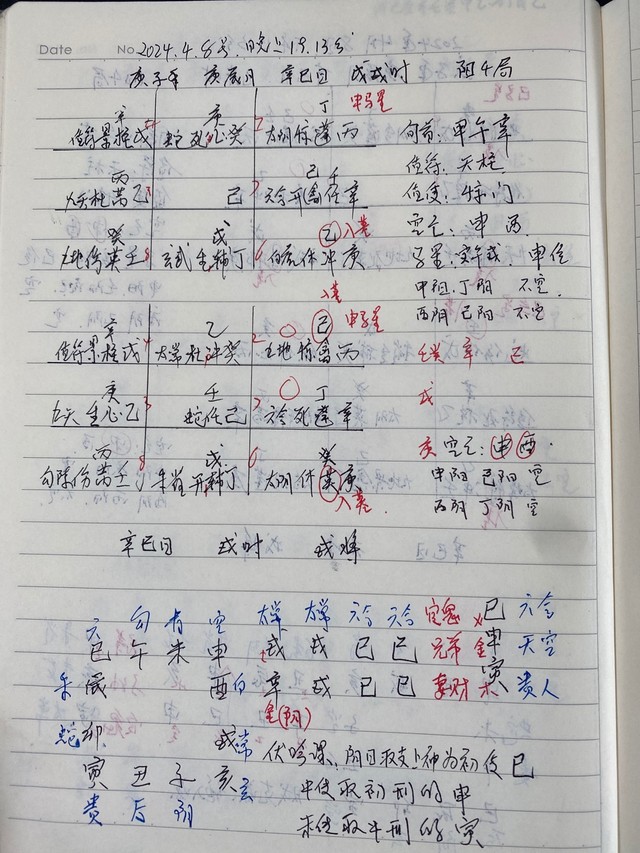 Date No. 2024.4.8号.晚上19.13分
庚子年 庚辰月 辛巳日 戊戌时 阳4局
辛 庚 丁 申马星
值符景柱戊 蛇死心癸 太阴惊蓬丙 旬首:甲午辛
丙 己壬 值符:天柱
九天杜芮乙 己 六合开禽任辛 值使:惊门
癸 戊 乙入墓 空亡:申酉
九地伤英壬 玄武生辅丁 白虎休冲庚 马星:寅午戌 申位
申阳 丁阴 不空
入墓 丙阴 己阳 不空
辛 乙 己 申马星
值符景柱戊 太常杜冲癸 九地惊禽丙 壬癸 辛 己
庚 壬 丁 戊
九天生心乙 蛇任己 六合死蓬辛
丙 戊 癸 庚 空亡:申酉
勾陈伤芮壬 朱雀开辅丁 太阴休英庚 申阳 己阳 空
入墓 丙阴 丁阴 空
辛巳日 戌时 戌将
六 勾 青 空 太常 太常 六合 六合 官鬼 火 巳 六合
巳 午 未 申 戌 戌 巳 巳 兄弟 金 申 天空
朱 辰 酉 白 辛 戌 巳 巳 妻财 木 寅 贵人
金(阴)
蛇 卯 戌 常 伏吟课、阴日取支上神为初传巳
寅 丑 子 亥 玄 中传取初刑的申
贵 后 阴 末传取中刑的寅